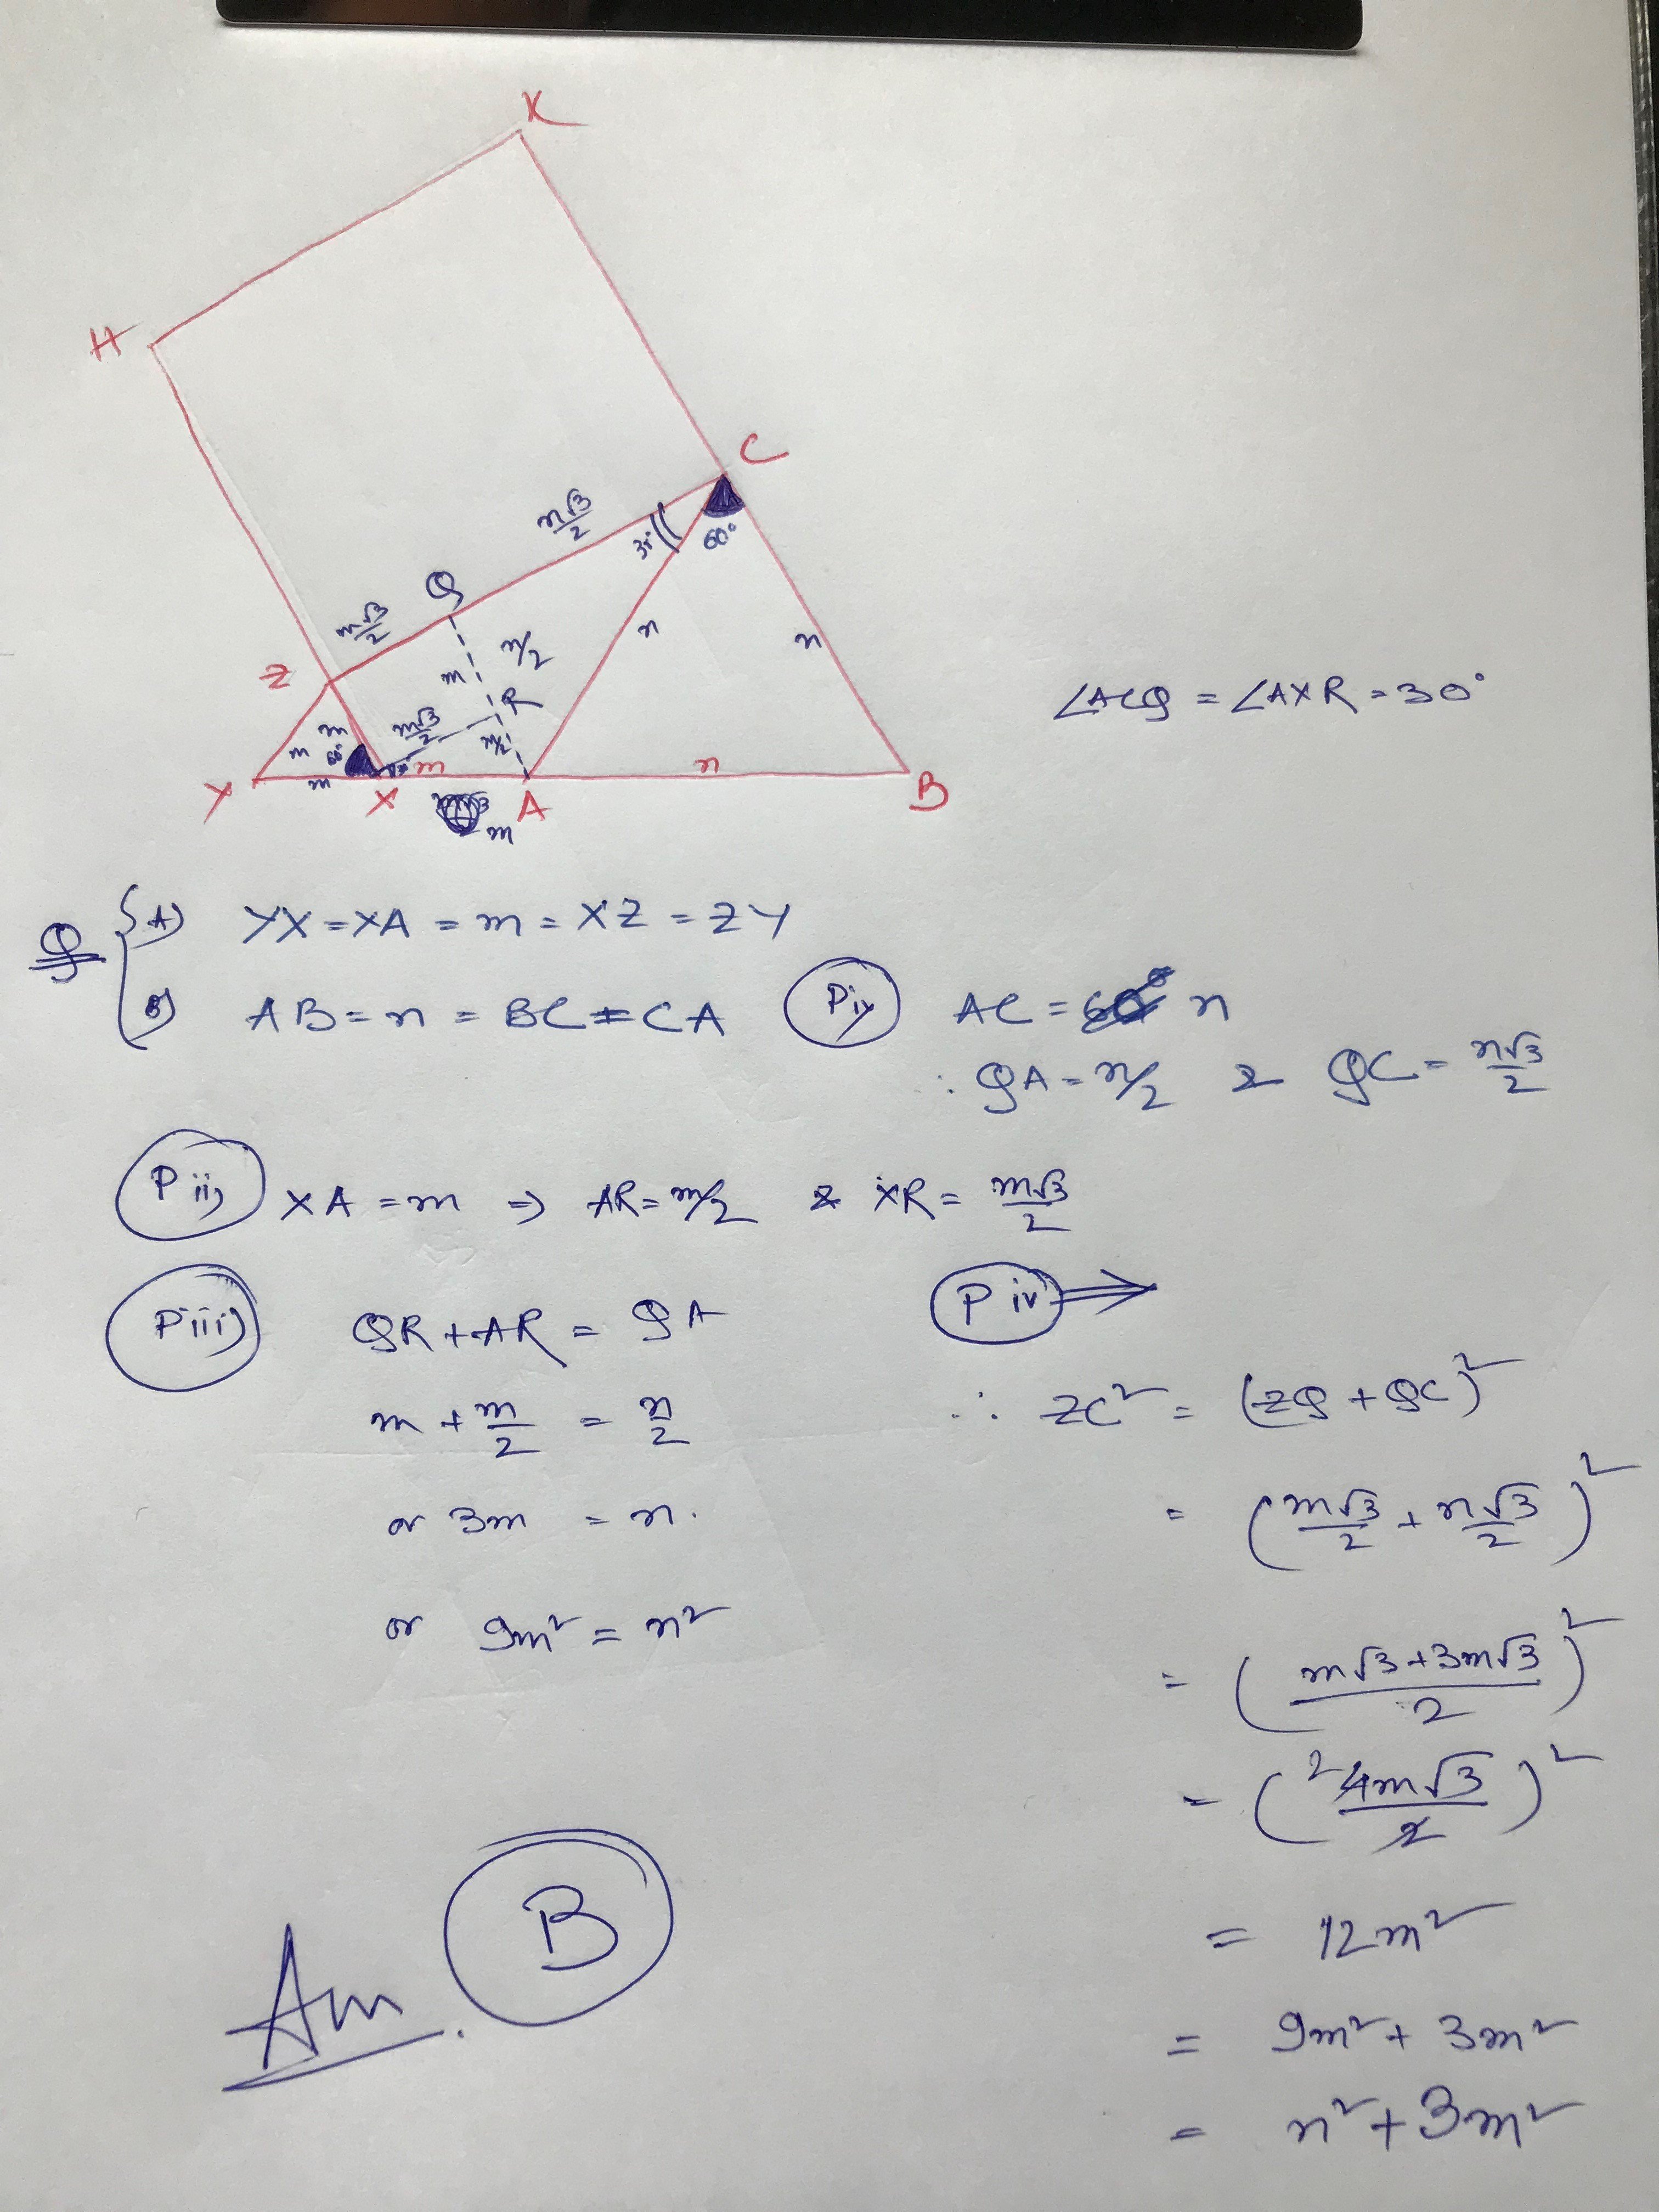 K
H
C
n√3/2
30°
60°
Q
m√3/2
n/2
n
n
Z
m
R
m
m√3/2
m
60°
m/2
30°
m
n
m
Y
X
A
B
m
∠ACQ = ∠AXR = 30°
Q
A) YX = XA = m = XZ = ZY
B) AB = n = BC = CA
P i, AC = n
∴ QA = n/2 & QC = n√3/2
P ii, XA = m ⇒ AR = m/2 & XR = m√3/2
P iii) QR + AR = QA
m + m/2 = n/2
or 3m = n.
or 9m² = n²
P iv ⇒
∴ ZC² = (ZQ + QC)²
= (m√3/2 + n√3/2)²
= (m√3 + 3m√3/2)²
= (²4m√3/2)²
= 12m²
= 9m² + 3m²
= n² + 3m²
Ans. B